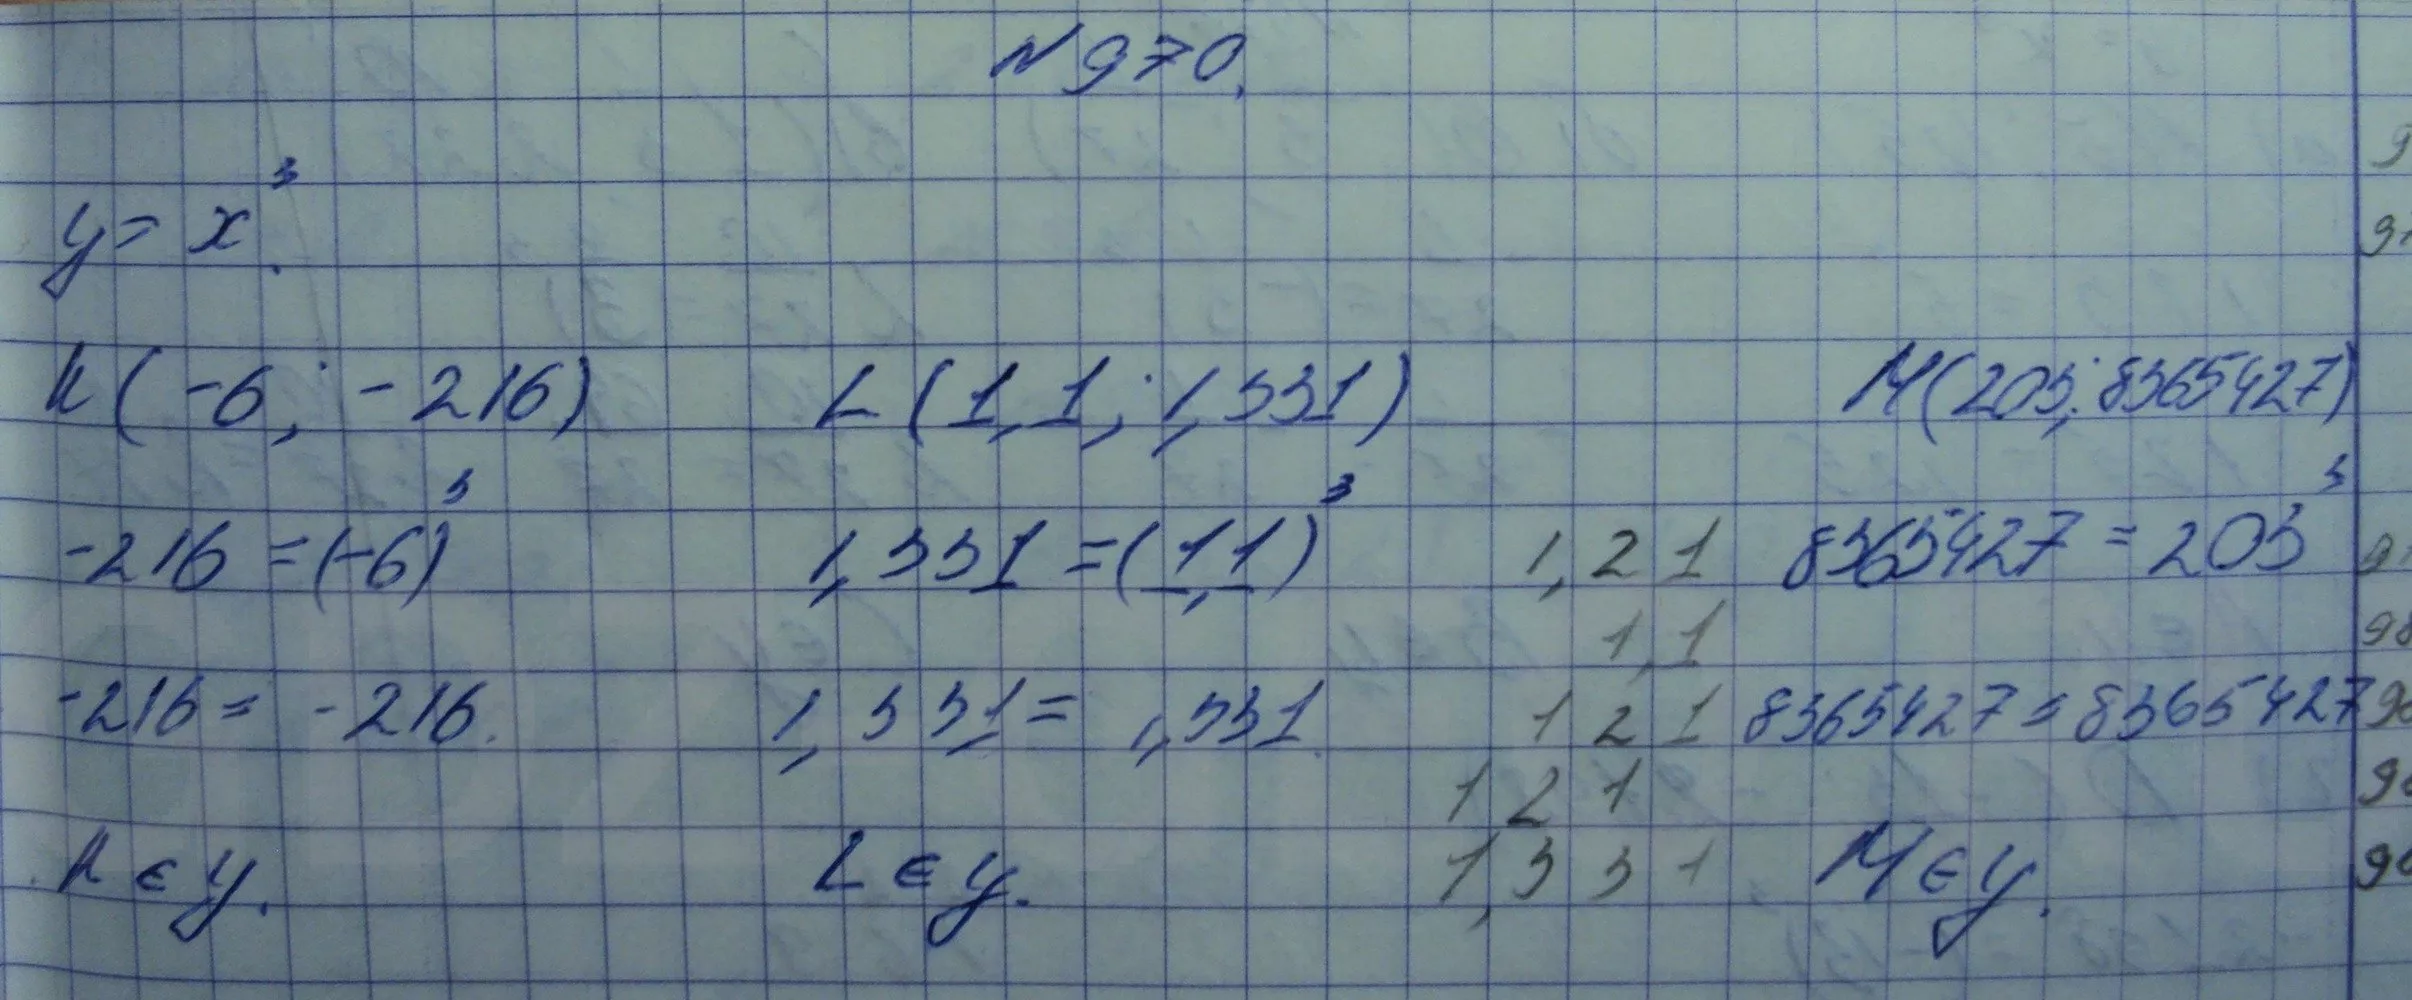 N 970.
y = x³.
K(-6; -216) L(1,1; 1,331) M(203; 8365427)
-216 = (-6)³ 1,331 = (1,1)³ 1,21 8365427 = 203³
1,1
-216 = -216. 1,331 = 1,331. 121 8365427 = 8365427
121
K ∈ y. L ∈ y. 1,331 M ∈ y.